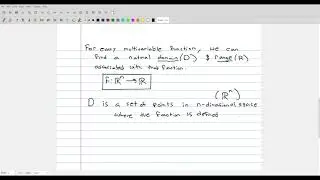 For easy multivariable function, we can
find a natural domain (D) & range (R)
associated with that function.
f: ℝⁿ → ℝ
(ℝⁿ)
D is a set of points in n-dimensional space
where the function is defined